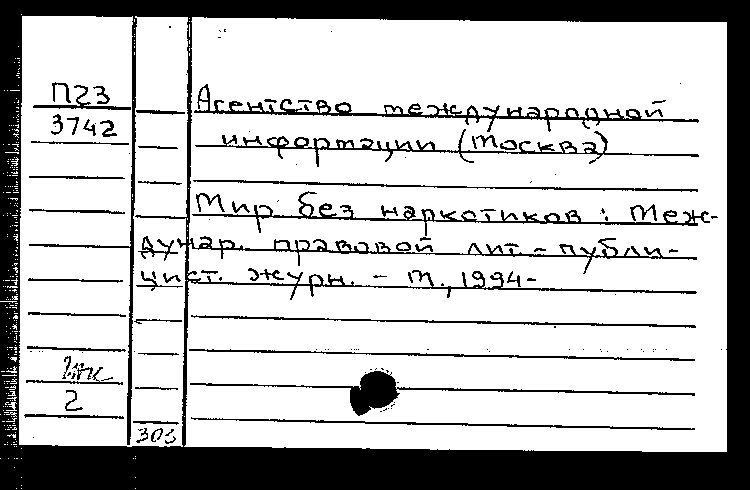 П23
3742
Агентство международной
информации (Москва)
Мир без наркотиков : Меж-
дунар. правовой лит. - публи-
цист. журн. - М., 1994-
2
303